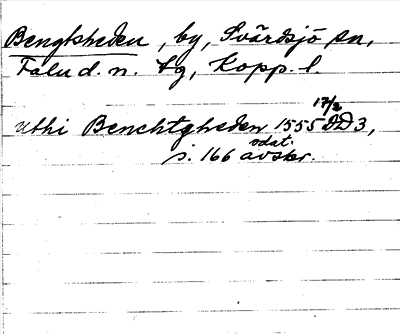 Bengtsheden, by, Svärdsjö sn,
Falu d. n. tg, Kopp. l.
17/2
uthi Benchtgheden 1555 DD3,
odat.
s. 166 avskr.